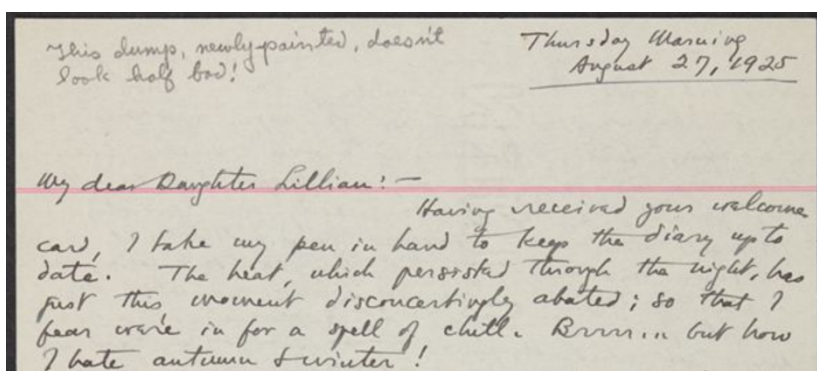 This dump, newly-painted, doesn't
look half bad!
Thursday Morning
August 27, 1925
My dear Daughter Lillian: —
Having received your welcome
card, I take my pen in hand to keep the diary up to
date. The heat, which persisted through the night, has
just this moment disconcertingly abated; so that I
fear we're in for a spell of chill. Brrrr... but how
I hate autumn & winter!